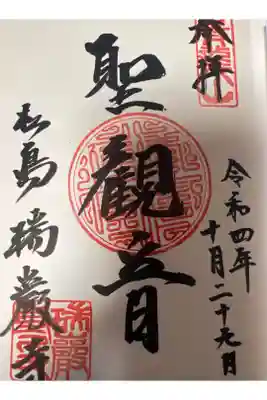 奉拝
令和四年
十月二十九日
聖観音
松島瑞巌寺